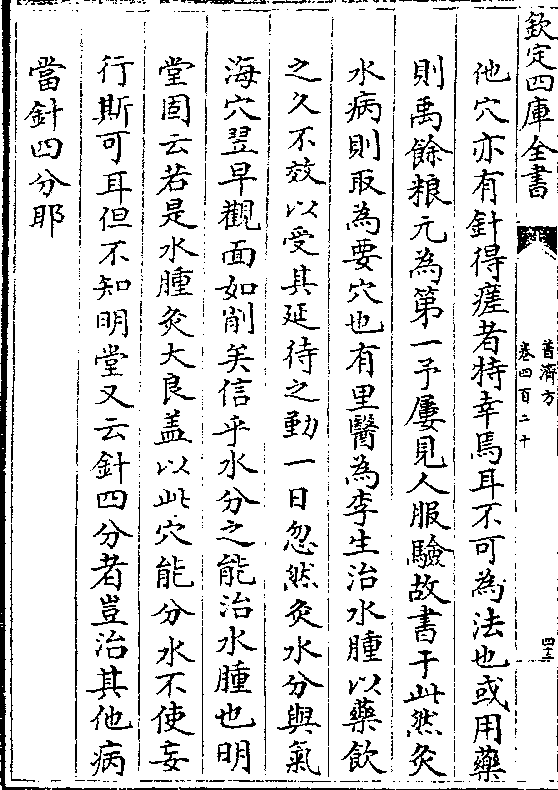 欽定四庫全書
普濟方
卷四百二十
他穴亦有針得瘥者特幸焉耳不可為法也或用藥
則禹餘粮元為第一予屢見人服驗故書于此然灸
水病則取為要穴也有里醫為李生治水腫以藥飲
之久不效以受其延待之勤一日忽然灸水分與氣
海穴翌早觀面如削矣信乎水分之能治水腫也明
堂固云若是水腫灸大良盖以此穴能分水不使妄
行斯可耳但不知明堂又云針四分者豈治其他病
當針四分耶